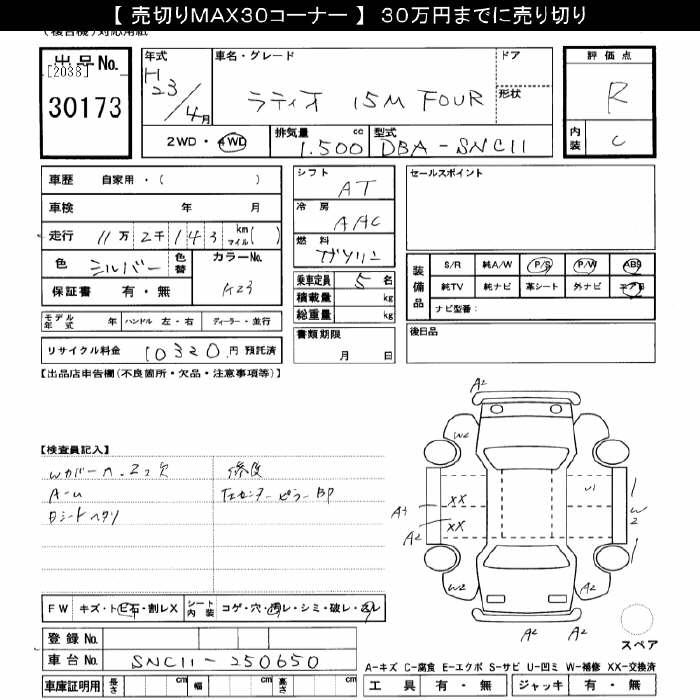 【 売切りMAX30コーナー 】 30万円までに売り切り
(複合機)対応用紙
出品No.
[2038]
30173
年式
H23/4月
車名・グレード
ラティオ 15M FOUR
ドア
形状
評価点
R
内装
C
2WD・4WD
排気量 cc
1.500
型式
DBA-SNC11
車歴 自家用・( )
車検 年 月
走行 11万2千143 km マイル( )
色 シルバー 色替
カラーNo.
K23
保証書 有・無
モデル年式 年 ハンドル 左・右 ディーラー・並行
リサイクル料金 10320円 預託済
シフト
AT
冷房
AAC
燃料
ガソリン
乗車定員 5名
積載量 kg
総重量 kg
書類期限
月 日
セールスポイント
装備品
S/R 純A/W P/S P/W ABS
純TV 純ナビ 革シート 外ナビ エアB
ナビ型番:
後日品
【出品店申告欄(不良箇所・欠品・注意事項等)】
【検査員記入】
修復
A-U
FW キズ・トビ石・割レX シート内装 コゲ・穴・切レ・シミ・破レ・汚レ
登録No.
車台No. SNC11-250650
車庫証明用 長さ cm 幅 cm 高さ cm
A2
W2
XX
A1
XX
A2
U1
W2
W2
A2
A2
A2
スペア
A-キズ C-腐食 E-エクボ S-サビ U-凹ミ W-補修 XX-交換済
工具 有・無 ジャッキ 有・無